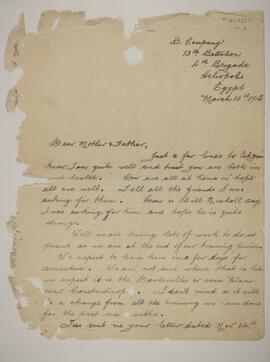 B. Company
13th Battalion
4th Brigade
Heliopolis
Egypt
March 16th 1915
Dear Mother & Father,
Just a few lines to let you
know I am quite well and trust you are both in
health. How are all at home I hope
all are well. Tell all the friends I was
asking for them. How is Bill Nicholl say
I was asking for him and hope he is quite
strong.
Well we are having lots of work to do at
present as we are at the end of our training period.
We expect to leave here in a few days for
somewhere. We are not sure where that is but
we expect it is the Dardanelles or some place
near Constantinople. I don't mind as it will
be a change from all the training we have done
for the past six months.
sent me your letter dated Nov 14th